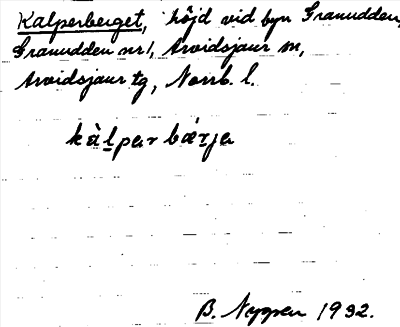 Kalperberget, höjd vid byn Granudden,
Granudden nr 1, Arvidsjaur sn,
Arvidsjaur tg, Norrb. l.
kàl̲par bær̲ja
B. Nygren 1932.